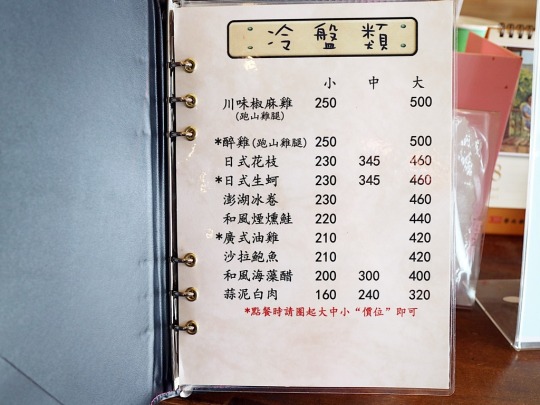 冷盤類
小 中 大
川味椒麻雞 250 500
(跑山雞腿)
*醉雞(跑山雞腿) 250 500
日式花枝 230 345 460
*日式生蚵 230 345 460
澎湖冰卷 230 460
和風煙燻鮭 220 440
*廣式油雞 210 420
沙拉鮑魚 210 420
和風海藻醋 200 300 400
蒜泥白肉 160 240 320
*點餐時請圈起大中小“價位”即可